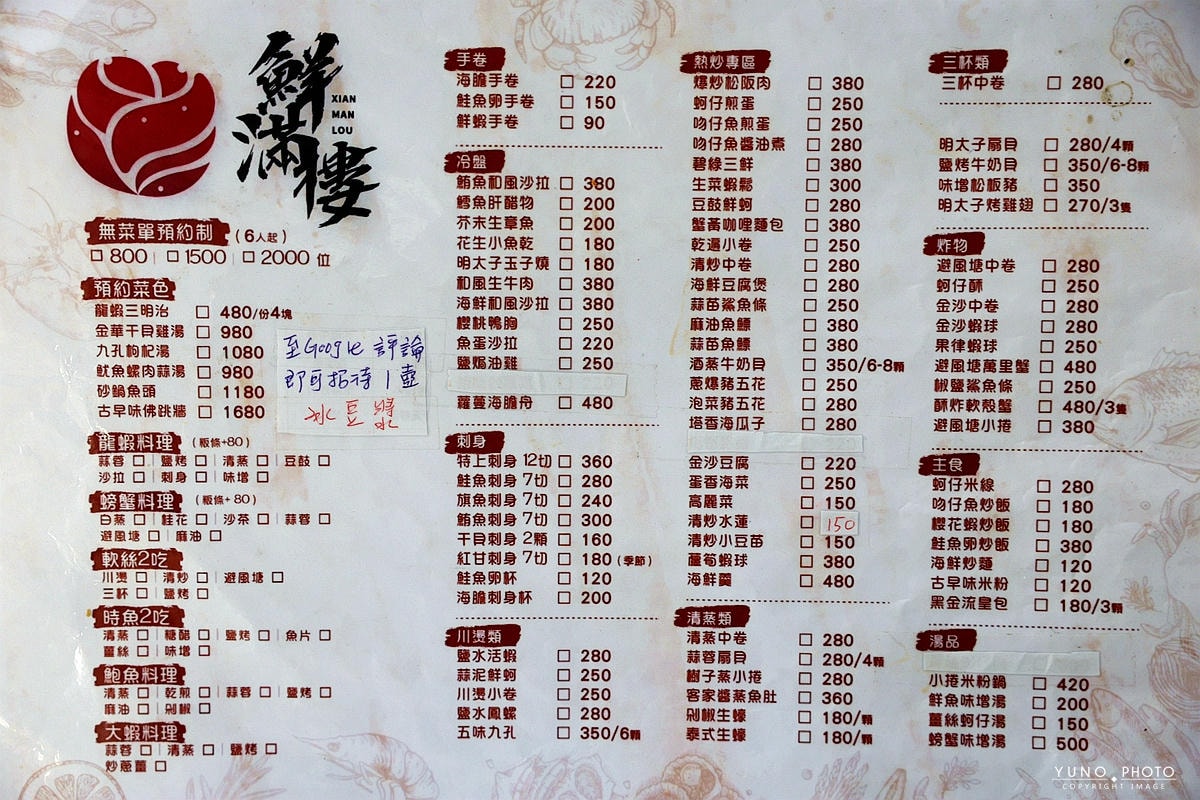 鮮滿樓
XIAN
MAN
LOU
無菜單預約制 (6人起)
□ 800 | □ 1500 | □ 2000 位
預約菜色
龍蝦三明治 □ 480/份4塊
金華干貝雞湯 □ 980
九孔枸杞湯 □ 1080
魷魚螺肉蒜湯 □ 980
砂鍋魚頭 □ 1180
古早味佛跳牆 □ 1680
至Google 評論
即可招待 1 壺
冰豆漿
龍蝦料理 (粄條+80)
蒜蓉 □ | 鹽烤 □ | 清蒸 □ | 豆鼓 □
沙拉 □ | 刺身 □ | 味增 □
螃蟹料理 (粄條+80)
白蒸 □ | 桂花 □ | 沙茶 □ | 蒜蓉 □
避風塘 □ | 麻油 □
軟絲2吃
川燙 □ | 清炒 □ | 避風塘 □
三杯 □ | 鹽烤 □
時魚2吃
清蒸 □ | 糖醋 □ | 鹽烤 □ | 魚片 □
薑絲 □ | 味增 □
鮑魚料理
清蒸 □ | 乾煎 □ | 蒜蓉 □ | 鹽烤 □
麻油 □ | 剁椒 □
大蝦料理
蒜蓉 □ | 清蒸 □ | 鹽烤 □
炒蔥薑 □
手卷
海膽手卷 □ 220
鮭魚卵手卷 □ 150
鮮蝦手卷 □ 90
冷盤
鮪魚和風沙拉 □ 380
鱈魚肝醋物 □ 200
芥末生章魚 □ 200
花生小魚乾 □ 180
明太子玉子燒 □ 180
和風生牛肉 □ 380
海鮮和風沙拉 □ 380
櫻桃鴨胸 □ 250
魚蛋沙拉 □ 220
鹽焗油雞 □ 250
蘿蔓海膽舟 □ 480
刺身
特上刺身 12切 □ 360
鮭魚刺身 7切 □ 280
旗魚刺身 7切 □ 240
鮪魚刺身 7切 □ 300
干貝刺身 2顆 □ 160
紅甘刺身 7切 □ 180 (季節)
鮭魚卵杯 □ 120
海膽刺身杯 □ 200
川燙類
鹽水活蝦 □ 280
蒜泥鮮蚵 □ 250
川燙小卷 □ 250
鹽水鳳螺 □ 280
五味九孔 □ 350/6顆
熱炒專區
爆炒松阪肉 □ 380
蚵仔煎蛋 □ 250
吻仔魚煎蛋 □ 250
吻仔魚醬油煮 □ 280
碧綠三鮮 □ 380
生菜蝦鬆 □ 300
豆鼓鮮蚵 □ 280
蟹黃咖哩麵包 □ 380
乾逼小卷 □ 250
清炒中卷 □ 280
海鮮豆腐煲 □ 280
蒜苗鯊魚條 □ 250
麻油魚鰾 □ 380
蒜苗魚鰾 □ 380
酒蒸牛奶貝 □ 350/6-8顆
蔥爆豬五花 □ 250
泡菜豬五花 □ 280
塔香海瓜子 □ 280
金沙豆腐 □ 220
蛋香海菜 □ 250
高麗菜 □ 150
清炒水蓮 □ 150
清炒小豆苗 □ 150
蘆筍蝦球 □ 380
海鮮羹 □ 480
清蒸類
清蒸中卷 □ 280
蒜蓉扇貝 □ 280/4顆
樹子蒸小捲 □ 280
客家醬蒸魚肚 □ 360
剁椒生蠔 □ 180/顆
泰式生蠔 □ 180/顆
三杯類
三杯中卷 □ 280
明太子扇貝 □ 280/4顆
鹽烤牛奶貝 □ 350/6-8顆
味增松板豬 □ 350
明太子烤雞翅 □ 270/3隻
炸物
避風塘中卷 □ 280
蚵仔酥 □ 250
金沙中卷 □ 280
金沙蝦球 □ 280
果律蝦球 □ 250
避風塘萬里蟹 □ 480
椒鹽鯊魚條 □ 250
酥炸軟殼蟹 □ 480/3隻
避風塘小捲 □ 380
主食
蚵仔米線 □ 280
吻仔魚炒飯 □ 180
櫻花蝦炒飯 □ 180
鮭魚卵炒飯 □ 380
海鮮炒麵 □ 120
古早味米粉 □ 120
黑金流皇包 □ 180/3顆
湯品
小捲米粉鍋 □ 420
鮮魚味增湯 □ 200
薑絲蚵仔湯 □ 150
螃蟹味增湯 □ 500
YUNO PHOTO
COPYRIGHT IMAGE